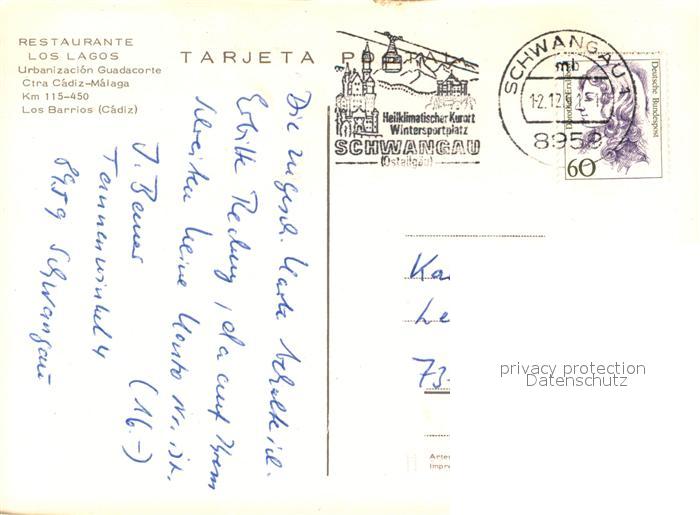 RESTAURANTE
LOS LAGOS
Urbanización Guadacorte
Ctra Cádiz-Málaga
Km 115-450
Los Barrios (Cádiz)
TARJETA POSTAL
Heilklimatischer Kurort
Wintersportplatz
SCHWANGAU
(Ostallgäu)
SCHWANGAU 1
mb
12.12.
8959
Deutsche Bundespost
60
Die zugesch. Karte behalte ich.
Erbitte Rechnung, da auf Ihrem
Schreiben keine Konto Nr. ist.
J. Bauer (16.-)
Tannenwinkel 4
8959 Schwangau
Ka
Le
73
privacy protection
Datenschutz